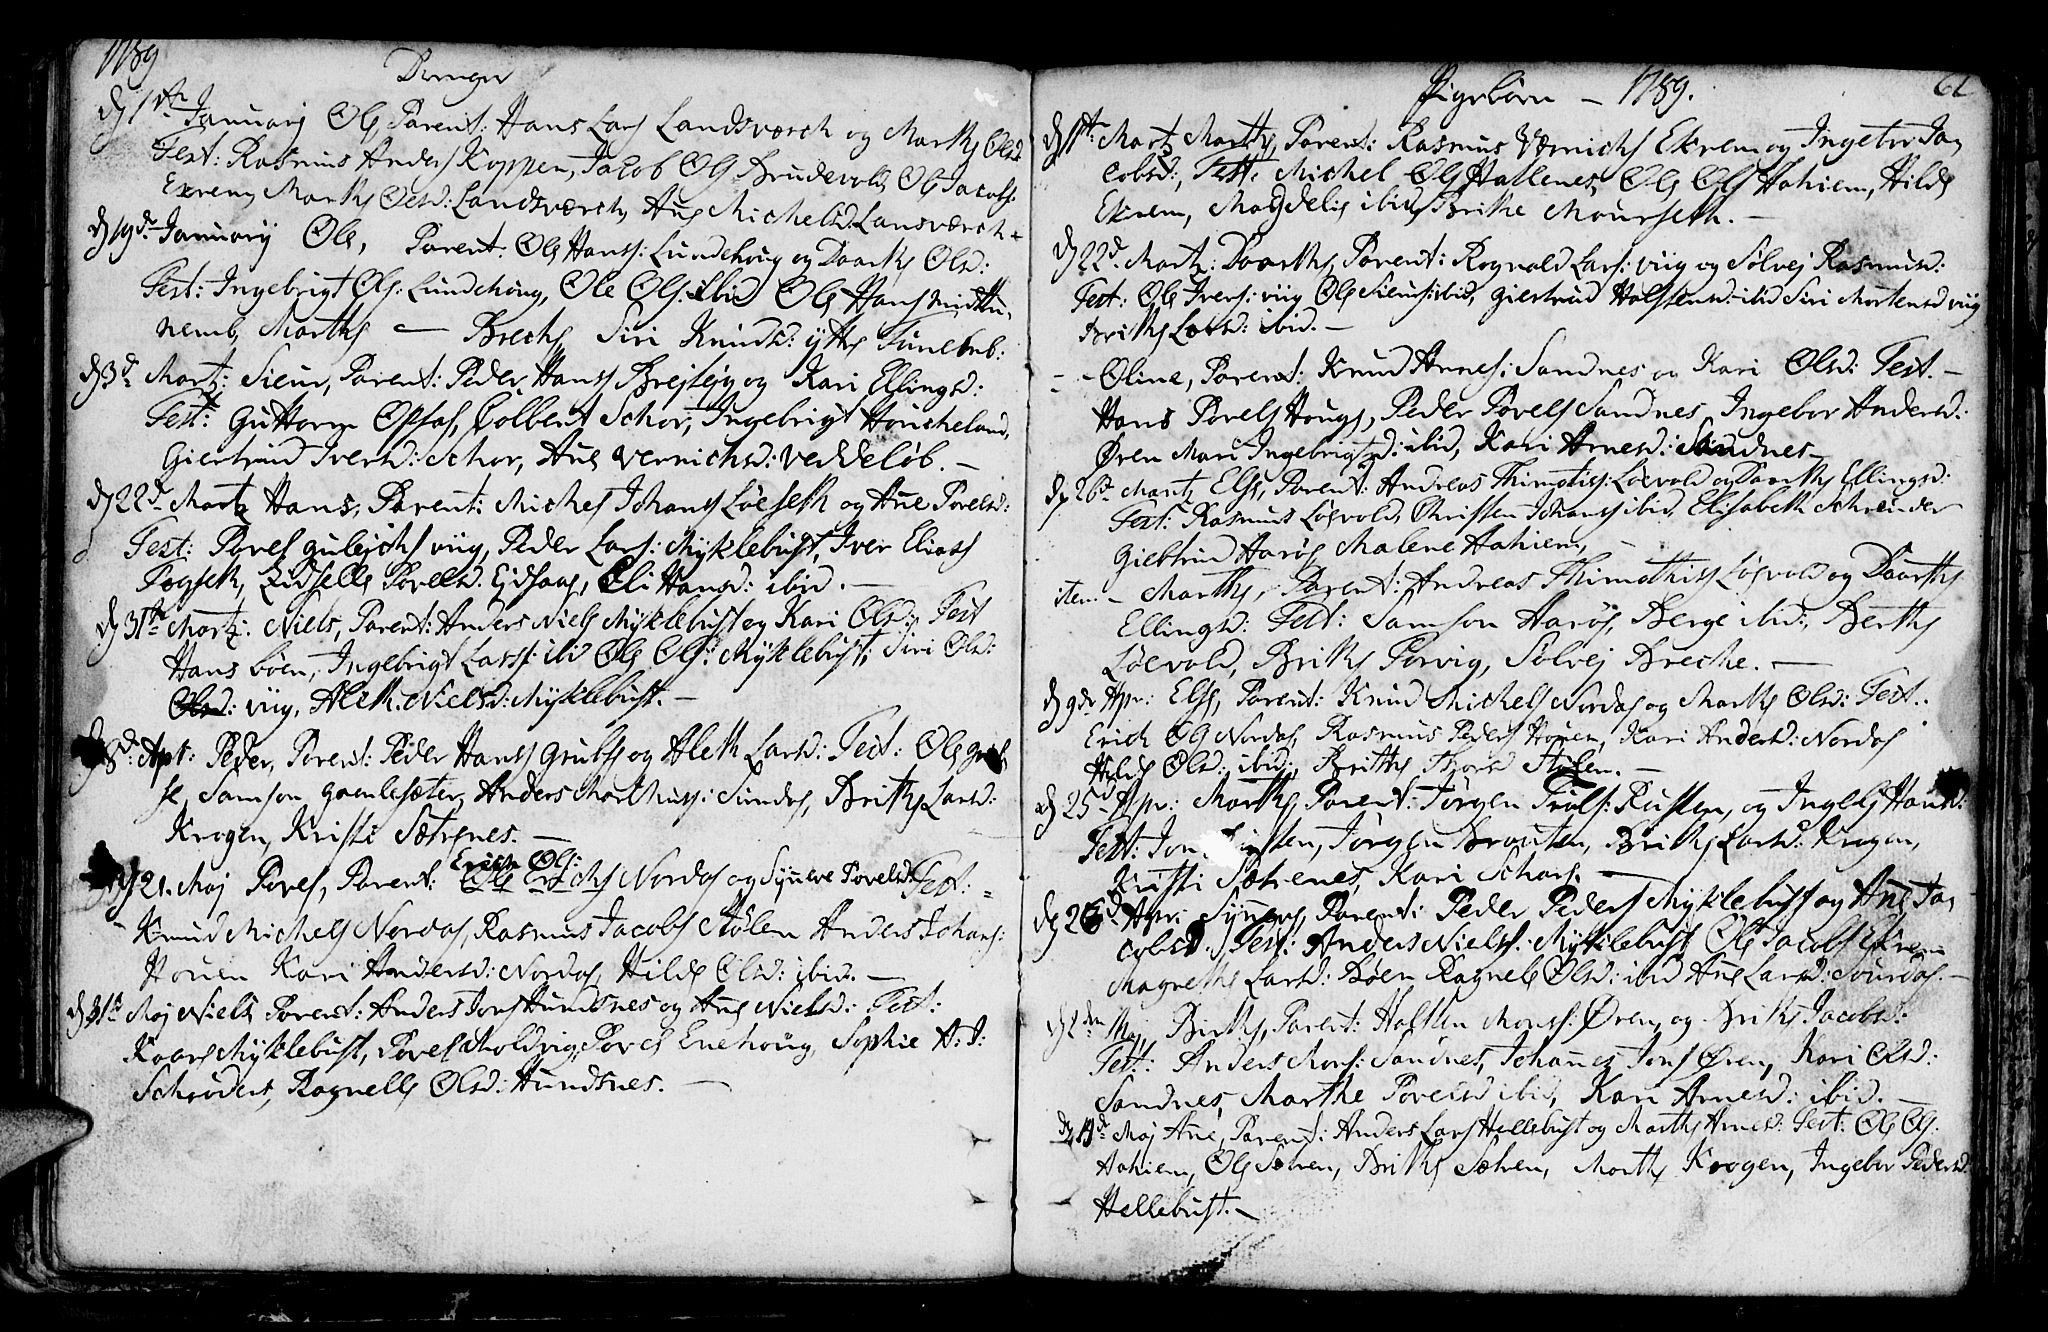 1789
Drenger
d 1te January Ole, Parent: Hans Lars Landsværch og Marthe Olsd
Test: Rasmus Anders Koppen, Jacob Ols Brudevold, Ole Jacobs:
Ekrem, Marthe Olsd: Landsværch, Ane Michelsd: Lansværch
d 19de January Ole, Parent: Ole Hanss: Lundehoug og Daarthe Olsd:
Test: Ingebrigt Ols: Lundehoug, Ole Ols: ibid Ole Hans
Marthe — Breche, Siri Knudsd: ytte
d 3d Martz: Sieur, Parent: Peder Hanss og Kari Ellingsd:
Test: Guttorm Opsal, Colbent Schor, Ingebrigt Houcheland,
Giertrud Iversd: Schor, Ane Vernichsd: Veddeløb. —
d 22d Martz Hans, Parent: Michel Johans Løeseth og Ane Povelsd:
Test: Povel viig, Peder Lars: Myklebust, Iver Eliass
Zidselle Povelsd: Eidsaae, Eli Hansd: ibid. —
d 31te Martz: Niels, Parent: Anders Niels Myklebust og Kari Olsd: Test
Hans Løen, Ingebrigt Larss: ibid Ole Ols: Myklebust, Siri Olsd:
Olsd: viig, Aleth Nielsd: Myklebust. —
8d Apr: Peder, Parent: Peder Hanss og Aleth Larsd: Test: Ole
Samson gamlesæter, Anders Mathiuss: Sundal, Brithe Larsd:
Krogen, Kristi Sætrenes. —
Erich Ols:
d 21. Maj Povel, Parent: Ole Erichs Nordal og Synneve Povelsd Test:
Knud Michels Nordal, Rasmus Jacobs Stølen Anders Johans:
Houen Kari Andersd: Nordal, Hilde Olsd: ibid. —
d 31te Maj Niels Parent: Anders Jons Hundsnes og Ane Nielsd: Test:
Kaare Myklebust, Povel Moldvig, Povel Enehoug, Sophie A: J:
Schrøders, Ragnelle Olsd: Hundsnes. —
Pigebørn — 1789.
d 1te Martz Marthe, Parent: Rasmus Vernichs Ekrem og Ingebor Ja-
cobsd:, Test: Michel Ols Hallenes, Ole Ols Aahiem, Hilde
Ekrem, Magdeli ibid, Brithe Mourseth. —
d 22d Martz: Daarthe, Parent: Rognald Lars: viig og Sølvej Rasmusd:
Test: Ole Ivers: viig Ole Sieurs: ibid, giertrud Halstensd: ibid Siri Mortensd viig
Brithe Larsd: ibid. —
- - Oline, Parent: Knud Arnes: Sandnes og Kari Olsd: Test. —
Hans Povels Houge, Peder Povels Sandnes, Ingebor Andersd:
Øren Mari Ingebrigtsd: ibid, Kari Arnesd: Sandnes —
d 26d Martz Else, Parent: Andreas Thimotiss: Løevold og Daarthe Ellingsd:
Test: Rasmus Løevold, Christen Johanss ibid, Elisabeth Schreuder
Giertrud Harøe Malene Aahiem, —
item — Marthe, Parent: Andreas Thimothiss Løevold og Daarthe
Ellingsd: Test: Samson Harøe, Berge ibid:, Berthe
Løevold, Brithe Porvig, Sølvej Breche. —
d 9de Apr: Else, Parent: Knud Michels Nordal og Marthe Olsd: Test.
Erich Ols Nordal, Rasmus Peders Houen, Kari Andersd: Nordal
Hilde Olsd: ibid:, Brithe Stølen. —
d 25d Apr: Marthe, Parent: Jørgen Trols: Rusten, og Ingeb Hansd:
Test: Jon Jørgen Brouten, Brithe Larsd: Krogen,
Kristi Sætrenes, Kari Schars. —
d 26d Apr: Synneve, Parent: Peder Peders Myklebust og Ane Ja-
cobsd. Test: Anders Niels: Myklebust Ole Jacobs Ekrem
Magnethe Larsd: Løen Ragnele Olsd: ibid Ane Larsd: Sourdal. —
d 2den Maj Birthe, Parent: Halsten Monss: Øren, og Brithe Jacobsd:
Test: Anders Mons: Sandnes, Johannes Jons Øren, Kari Olsd:
Sandnes, Marthe Povelsd ibid, Kari Arnesd: ibid. —
Maj Ane, Parent: Anders Lars Hellebust og Marthe Arnesd: Test: Ole Ols:
Aahiem, Ole Sætren, Brithe Sætren, Marthe Krogen, Ingebor Pedersd:
Hellebust. —